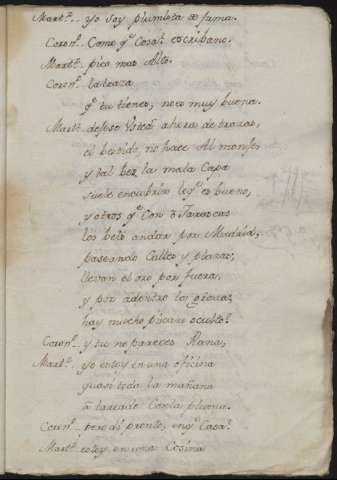 Mart.ⁿ yo soy plumista de fama.
Coron.ˡ Como q.ᵉ Cosa? escribano.
Mart.ⁿ pico mas Alto.
Coron.ˡ la traza
q.ᵉ tu tienes, no es muy buena.
Mart.ⁿ dejese Usted ahora de trazas,
el bestido, no hace Al monje
y tal bez la mala Capa
suele encubrir lo q.ᵉ es bueno,
y otros q.ᵉ Con
los beis andar por Madrid,
paseando Calles y plazas,
llevan el oro por fuera,
y por adentro la
hay mucho picaro oculto.
Coron.ˡ y tu no pareces Rana,
Mart.ⁿ yo estoy en una oficina
quasi toda la mañana
Con la pluma.
Coron.ˡ pero di pronto, en q.ᵉ Casa?
Mart.ⁿ estoy en una Cosina